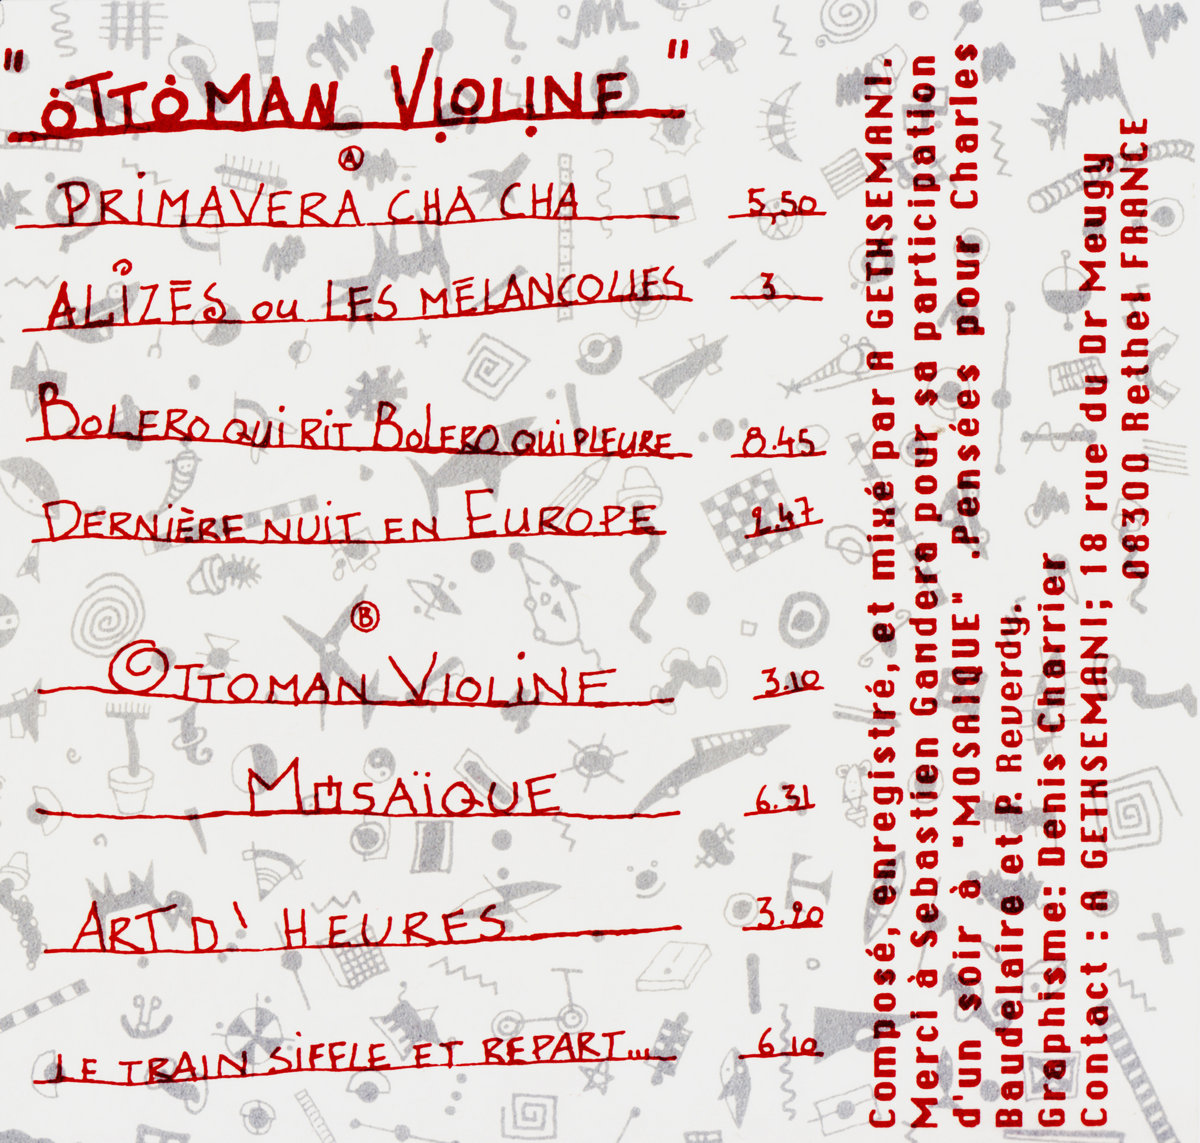 "OTTOMAN VIOLINE"
A
PRIMAVERA CHA CHA 5,50
ALIZÉS OU LES MÉLANCOLIES 3
BOLERO QUI RIT BOLERO QUI PLEURE 8.45
DERNIÈRE NUIT EN EUROPE 2.47
B
OTTOMAN VIOLINE 3.10
MOSAÏQUE 6.31
ART D' HEURES 3.20
LE TRAIN SIFFLE ET REPART... 6 10
Composé, enregistré, et mixé par A GETHSEMANI.
Merci à Sebastien Gandera pour sa participation
d'un soir à "MOSAIQUE" .Pensées pour Charles
Baudelaire et P. Reverdy.
Graphisme: Denis Charrier
Contact : A GETHSEMANI; 18 rue du Dr Meugy
08300 Rethel FRANCE